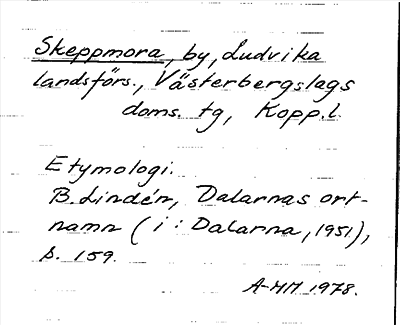 Skeppmora, by, Ludvika
landsförs., Västerbergslags
doms. tg, Kopp.l.
Etymologi.
B. Lindén, Dalarnas ort-
namn (i: Dalarna, 1951),
s. 159.
A-MM 1978.